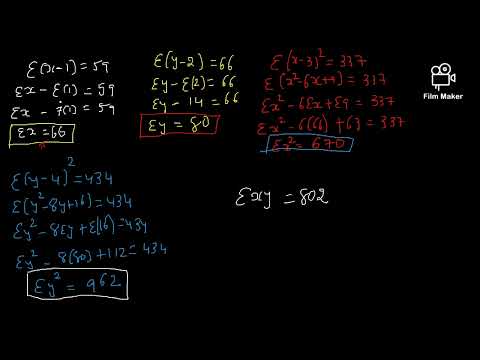 Ɛ(x-1) = 59
Ɛx - Ɛ(1) = 59
Ɛx - 7(1) = 59
Ɛx = 66
Ɛ(y-2) = 66
Ɛy - Ɛ(2) = 66
Ɛy - 14 = 66
Ɛy = 80
Ɛ(x-3)² = 337
Ɛ(x²-6x+9) = 337
Ɛx² - 6Ɛx + Ɛ9 = 337
Ɛx² - 6(66) + 63 = 337
Ɛx² = 670
Film Maker
Ɛ(y-4)² = 434
Ɛ(y²-8y+16) = 434
Ɛy² - 8Ɛy + Ɛ(16) = 434
Ɛy² - 8(80) + 112 = 434
Ɛy² = 962
Ɛxy = 802